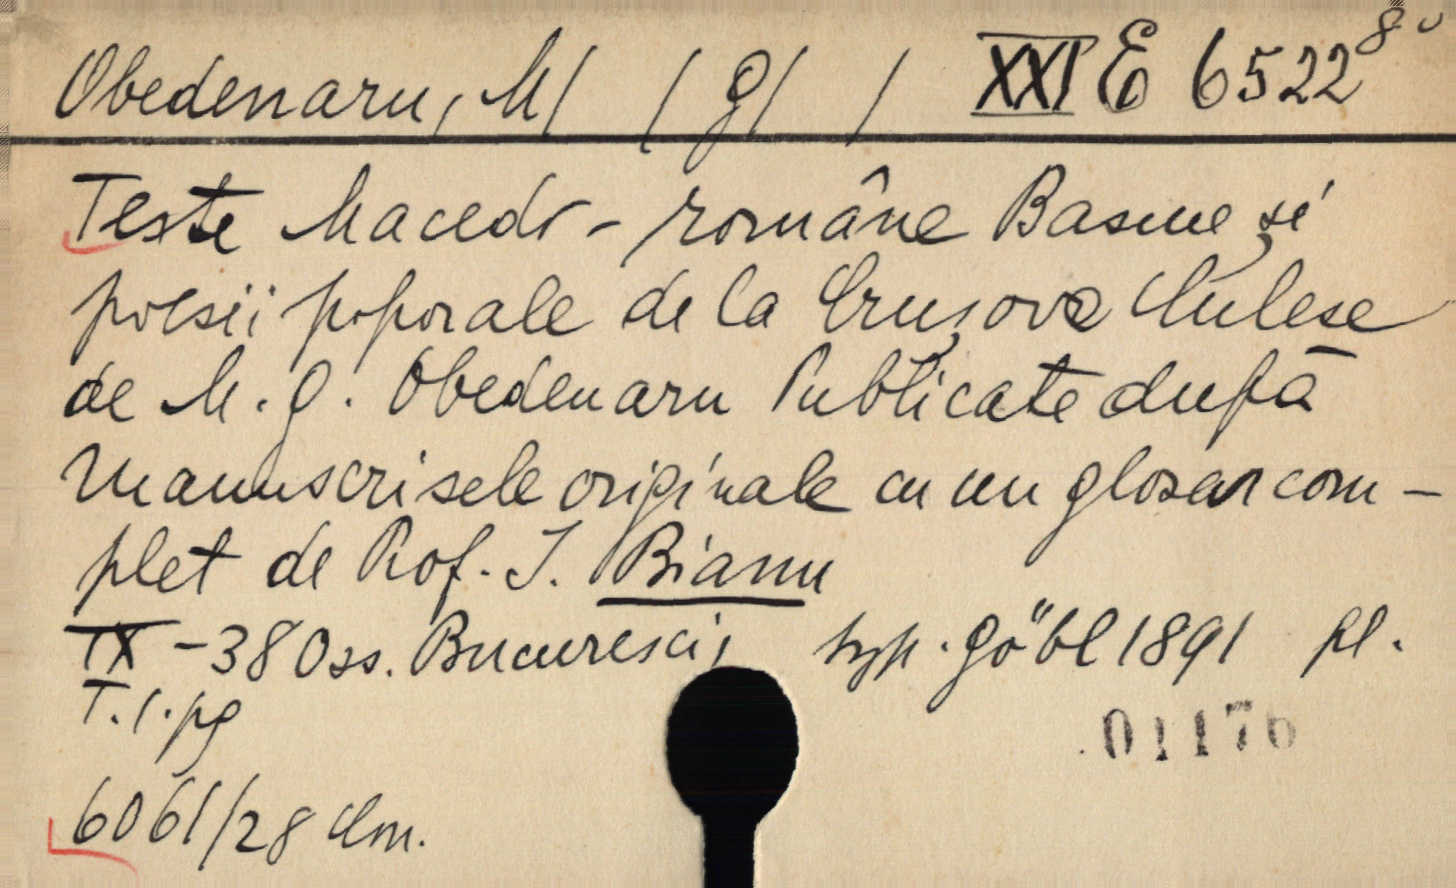 Obedenaru, M/ /G/ / XXI E 6522 8°
Texte Macedo-române Basme și
poesii poporale de la Crușova Culese
de M. G. Obedenaru Publicate după
manuscrisele originale cu un glosar com-
plet de Prof. I. Bianu
IX - 380 ss. Bucuresci, typ. Göbl 1891 pl.
T. 1. pg
01176
6061/28 Clm.